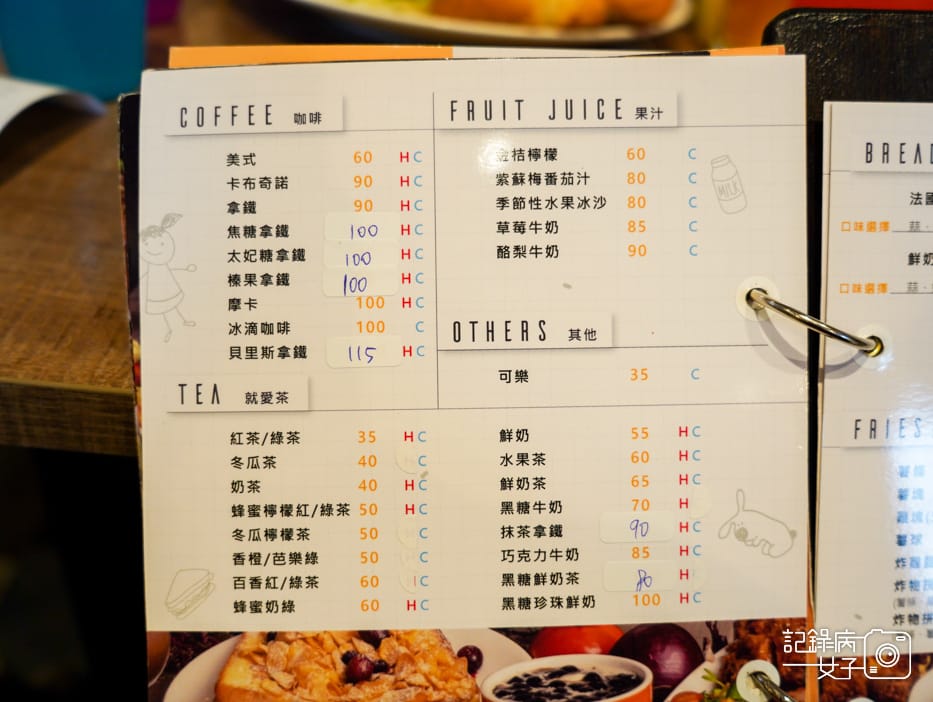 COFFEE 咖啡
美式 60 H C
卡布奇諾 90 H C
拿鐵 90 H C
焦糖拿鐵 100 H C
太妃糖拿鐵 100 H C
榛果拿鐵 100 H C
摩卡 100 H C
冰滴咖啡 100 C
貝里斯拿鐵 115 H C
FRUIT JUICE 果汁
金桔檸檬 60 C
紫蘇梅番茄汁 80 C
季節性水果冰沙 80 C
草莓牛奶 85 C
酪梨牛奶 90 C
MILK
OTHERS 其他
可樂 35 C
TEA 就愛茶
紅茶/綠茶 35 H C
冬瓜茶 40 C
奶茶 40 H C
蜂蜜檸檬紅/綠茶 50 H C
冬瓜檸檬茶 50 C
香橙/芭樂綠 50 C
百香紅/綠茶 60 C
蜂蜜奶綠 60 H C
鮮奶 55 H C
水果茶 60 H C
鮮奶茶 65 H C
黑糖牛奶 70 H
抹茶拿鐵 90 H C
巧克力牛奶 85 H C
黑糖鮮奶茶 80 H
黑糖珍珠鮮奶 100 H C
BREAD
法國
口味選擇
鮮奶
口味選擇
FRIES
薯條
薯塊
薯球
炸物拼
記錄病
女子